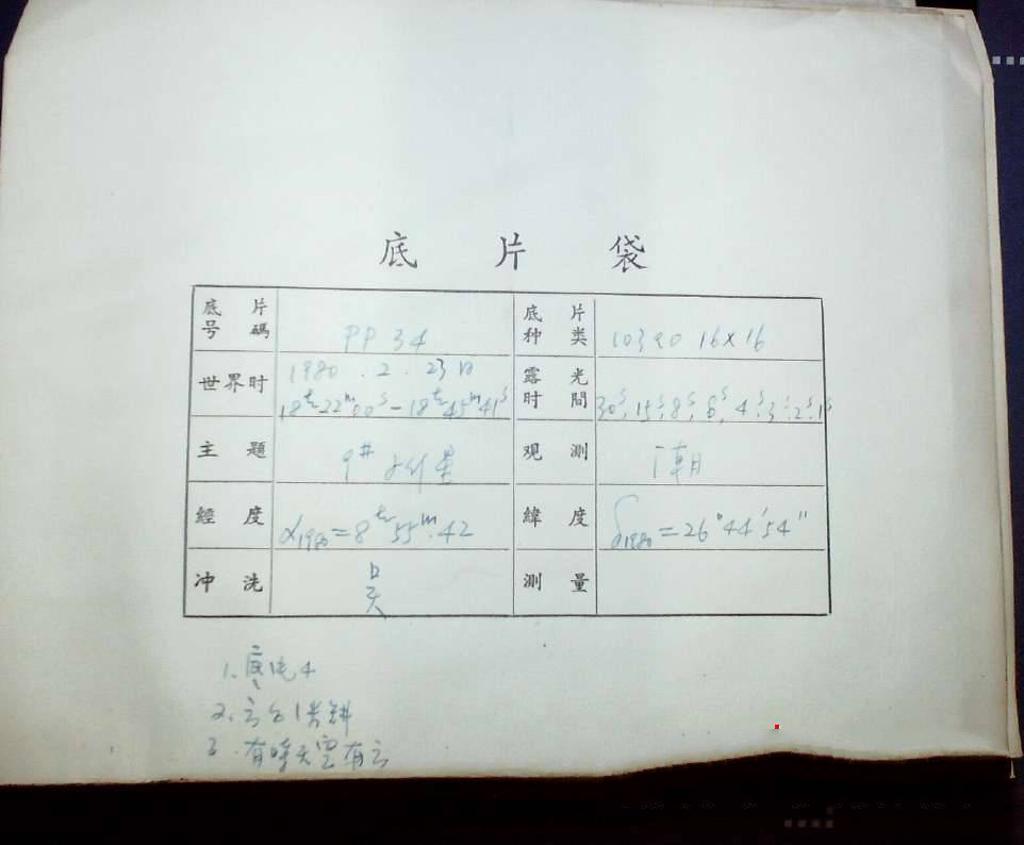 底片袋
底片号碼 PP 34 底片种类 103aO 16×16
世界时 1980.2.23日 露光时間
18ʰ22ᵐ00ˢ-18ʰ45ᵐ41ˢ 30ˢ, 15ˢ, 8ˢ, 6ˢ, 4ˢ, 3ˢ, 2ˢ, 1ˢ
主題 9# 观測
經度 α1980=8ʰ55ᵐ.42 緯度 δ1980=26°44′54″
冲洗 吴 測量
1.
2.
3.有時天空有云